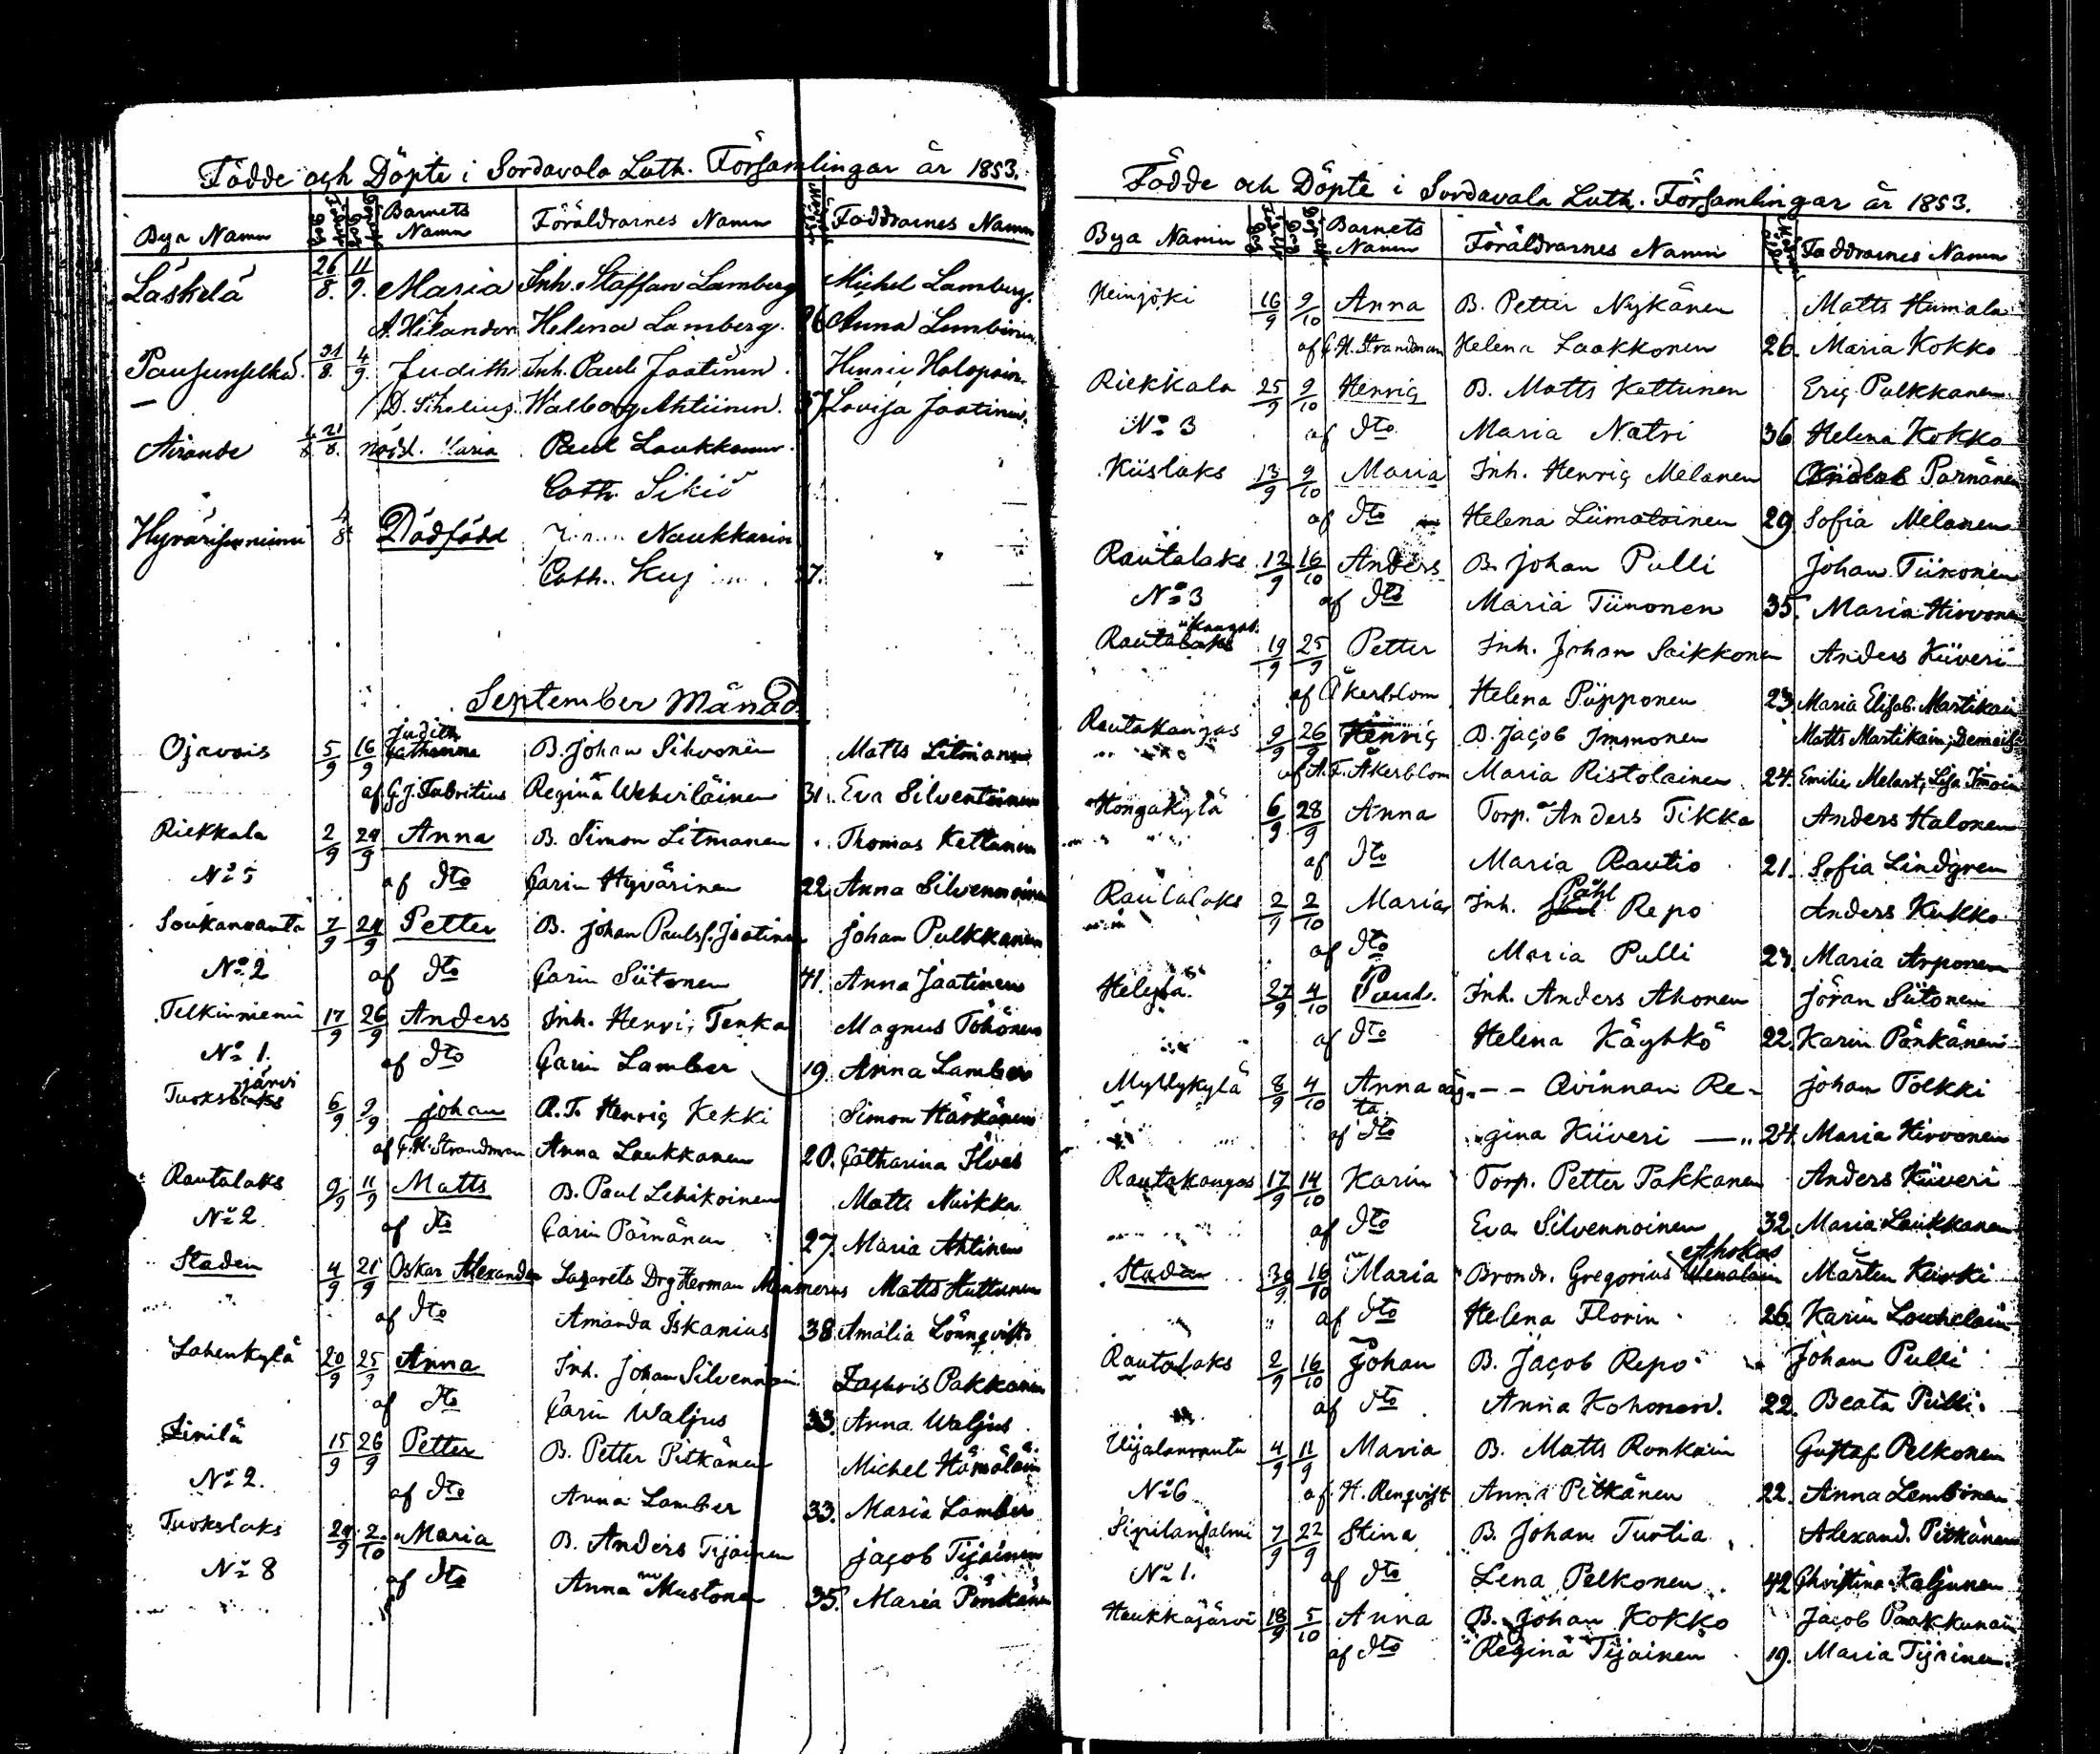 Födde och Döpte i Sordavala Luth. Församlingar år 1853.
Bya Namn Barnets Namn Föräldrarnes Namn Faddrarnes Namn
Läskelä 26/8. 11/9. Maria Inh. Staffan Lamberg Michel Lamberg.
A. Hikander Helena Lamberg. 26 Anna Lembinen
31/8. 4/9. Judith Inh. Paul Jaatinen. Henric Holopain.
D. Sihelius. Walborg Ahtiinen. 37 Lovisa Jaatinen.
Airande 21/8. nöjd. Maria Paul Laukkanen.
Cath. Sikiö
Hyvärisenniemi 4/8 Dödfödd Naukkarin
Cath. 37.
September Månad.
Ojavois 5/9 16/9 Judith Catharina B. Johan Sihvonen Matts Litmanen
af G. J. Fabritius Regina Wehviläinen 31. Eva Silventoinen
Riekkala 2/9 24/9 Anna B. Simon Litmanen Thomas Kettunen
No 5 af Dto Carin Hyvärinen 22. Anna Silvennoinen
Soukanranta 7/9 24/9 Petter B. Johan Paulsf. Jaatinen Johan Pulkkanen
No 2 af Dto Carin Siitonen 41. Anna Jaatinen
Telkinniemi 17/9 26/9 Anders Inh. Henric Tenka Magnus Töhönen
No 1. af Dto Carin Lamber 19. Anna Lamber
Tuoksjärvi 6/9 9/9 Johan R. T. Henric Kekki Simon Härkönen
af G. H. Strandman Anna Laukkanen 20. Catharina Ilves
Rautalaks 9/9 11/9 Matts B. Paul Lehikoinen Matts Nuikka
No 2. af Dto Carin Pärnänen 27. Maria Ahtinen
Staden 4/9 21/9 Oskar Alexander Lazarets Drg Herman Matts Huttunen
af Dto Amanda Iskanius 38 Amalia Lönnqvist
Lahenkylä 20/9 25/9 Anna Inh. Johan Silvennoin Zachris Pakkanen
af Dto Carin Waljus 33. Anna Waljus
Sinilä 15/9 26/9 Petter B. Petter Pitkänen Michel Hämäläin
No 2. af Dto Anna Lamber 33. Maria Lamber
Tuokslaks 24/9 2/10 Maria B. Anders Tijainen Jacob Tijainen
No 8 af Dto Anna Mustonen 35. Maria Pönkänen
Födde och Döpte i Sordavala Luth. Församlingar år 1853.
Bya Namn Barnets Namn Föräldrarnes Namn Faddrarnes Namn
Heinjoki 16/9 9/10 Anna B. Petter Nykänen Matts Humala
af G. H. Strandman Helena Laakkonen 26. Maria Kokko
Riekkala 25/9 9/10 Henric B. Matts Kettunen Eric Pulkkanen
No 3 af Dto Maria Natri 36 Helena Kokko
Kiislaks 13/9 9/10 Maria Inh. Henric Melanen Parnänen
af Dto Helena Liimatainen 29. Sofia Melanen
Rautalaks 12/9 16/10 Anders B. Johan Pulli Johan Tiinonen
No 3 af Dto Maria Tiinonen 35. Maria Hirvonen
Rautakangas 19/9 25/9 Petter Inh. Johan Saikkonen Anders Kiiveri
af Åkerblom Helena Piipponen 23. Maria Elisab. Martikain
Rautakangas 9/9 26/9 Henric B. Jacob Immonen Matts Martikain, Demoise
af A. F. Åkerblom Maria Ristolainen 24. Emilie Melart, Lisa Imoin
Hongakylä 6/9 28/9 Anna Torp. Anders Tikka Anders Halonen
af Dto Maria Rautio 21. Sofia Lindgren
Rautalaks 2/9 2/10 Maria Inh. Påhl Repo Anders Kukko
af Dto Maria Pulli 23. Maria Arponen
Helylä. 27/9 4/10 Paul. Inh. Anders Ahonen Jöran Siitonen
af Dto Helena Käyhkö 22. Karin Pönkänen
Myllykylä 8/9 4/10 Anna oäg- -- Qvinnan Re- Johan Tolkki
ta
af Dto gina Kiiveri — 24. Maria Hirvonen
Rautakangas 17/9 14/10 Karin Torp. Petter Pakkanen Anders Kiiveri
af Dto Eva Silvennoinen 32. Maria Laukkanen
Staden 30/9 16/10 Maria Brondr. Gregorius Wenäläin Ahokas Mårten Kurki
af Dto Helena Florin 26. Karin Louhelain
Rautalaks 2/9 16/10 Johan B. Jacob Repo Johan Pulli
af Dto Anna Kohonen. 22. Beata Pulli.
Uijalanranta 4/9 11/9 Maria B. Matts Ronkain Gustaf Pelkonen
No 6 af H. Renqvist Anna Pitkänen 22. Anna Lembinen
Sipilansalmi 7/9 22/9 Stina B. Johan Turtia Alexand. Pitkänen
No 1. af Dto Lena Pelkonen. 42 Christina Kaljunen
Haukkajärvi 18/9 5/10 Anna B. Johan Kokko Jacob Paakkunain
af Dto Regina Tijainen 19. Maria Tijainen.